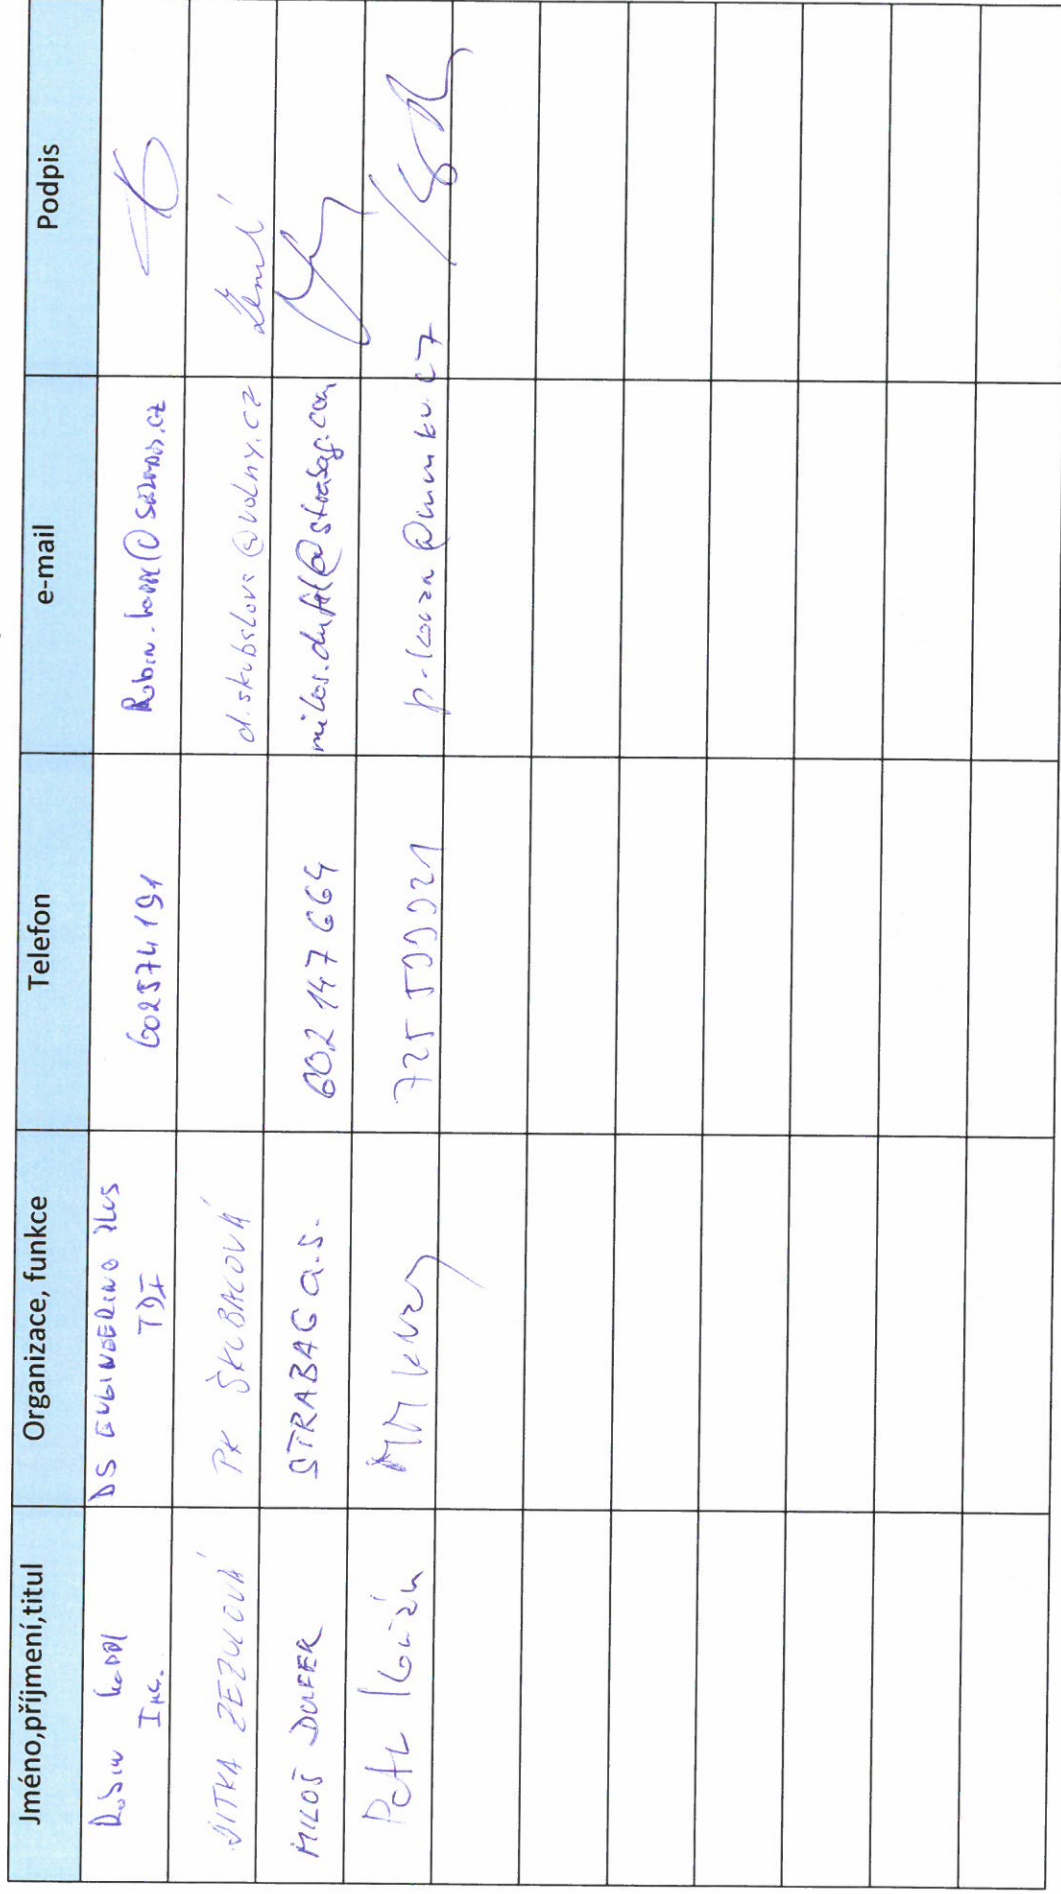 Jméno,příjmení,titul Organizace, funkce Telefon e-mail Podpis
Robin DS ENGINEERING
Ing. TDI 602574191
JITKA ZEZULOVÁ PK ŠKUBALOVÁ d.skubalova@volny.cz
MILOŠ DUFEK STRABAG a.s. 602 147 664 milos.dufek@strabag.com
Petr MM KVary 725 599921 @mmkv.cz